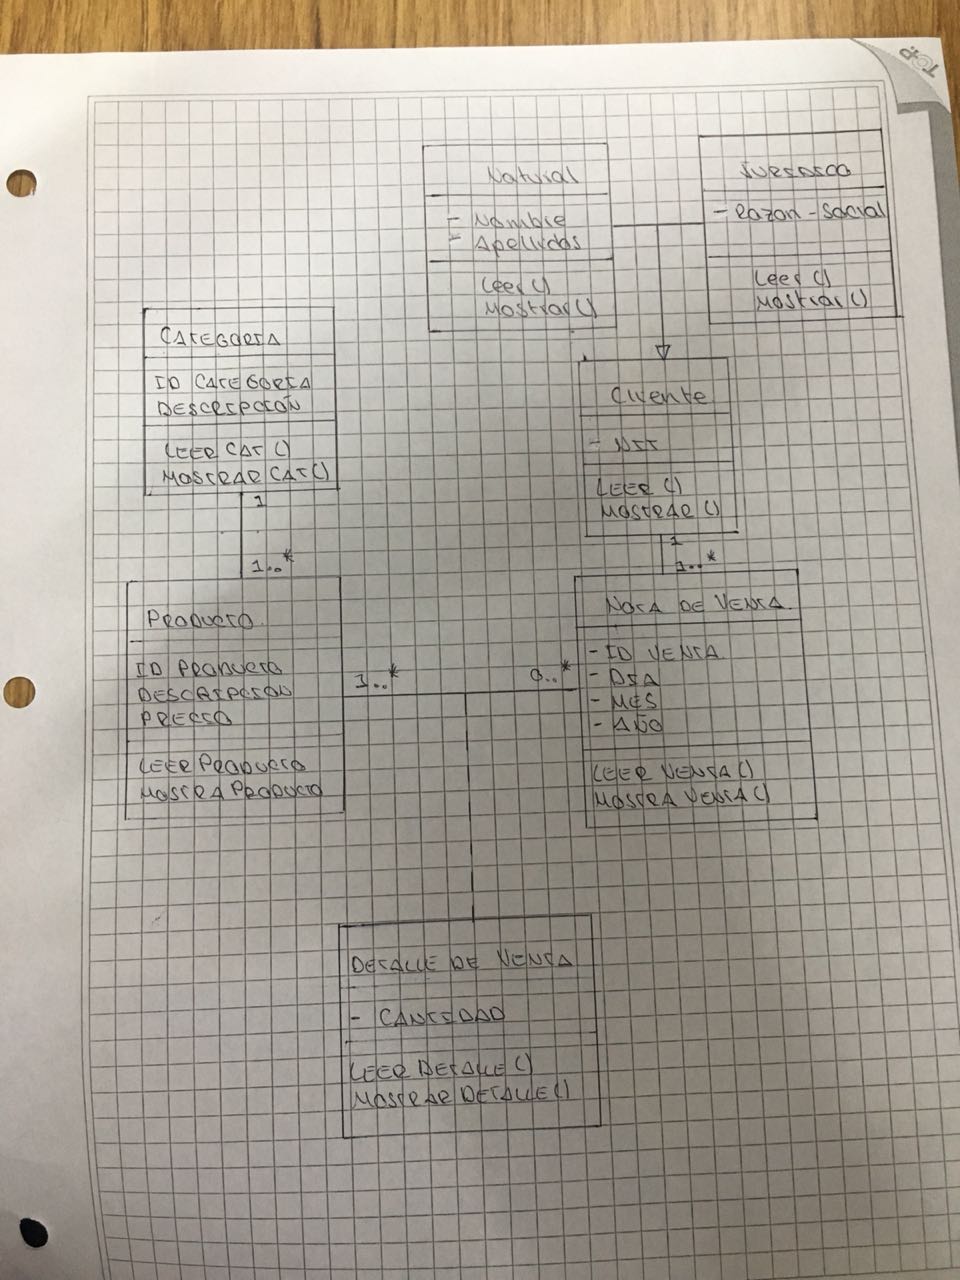 TOP
Natural
- Nombre
- Apellidos
Leer ()
Mostrar ()
JURIDICO
- Razon - Social
Leer ()
Mostrar ()
CATEGORIA
ID CATEGORIA
DESCRIPCION
LEER CAT ()
MOSTRAR CAT ()
1
1..*
Cliente
- NIT
LEER ()
MOSTRAR ()
1
1..*
PRODUCTO
ID PRODUCTO
DESCRIPCION
PRECIO
LEER PRODUCTO
MOSTRA PRODUCTO
1..*
0..*
NOTA DE VENTA
- ID VENTA
- DIA
- MES
- AÑO
LEER VENTA ()
MOSTRA VENTA ()
DETALLE DE VENTA
- CANTIDAD
LEER DETALLE ()
MOSTRAR DETALLE ()